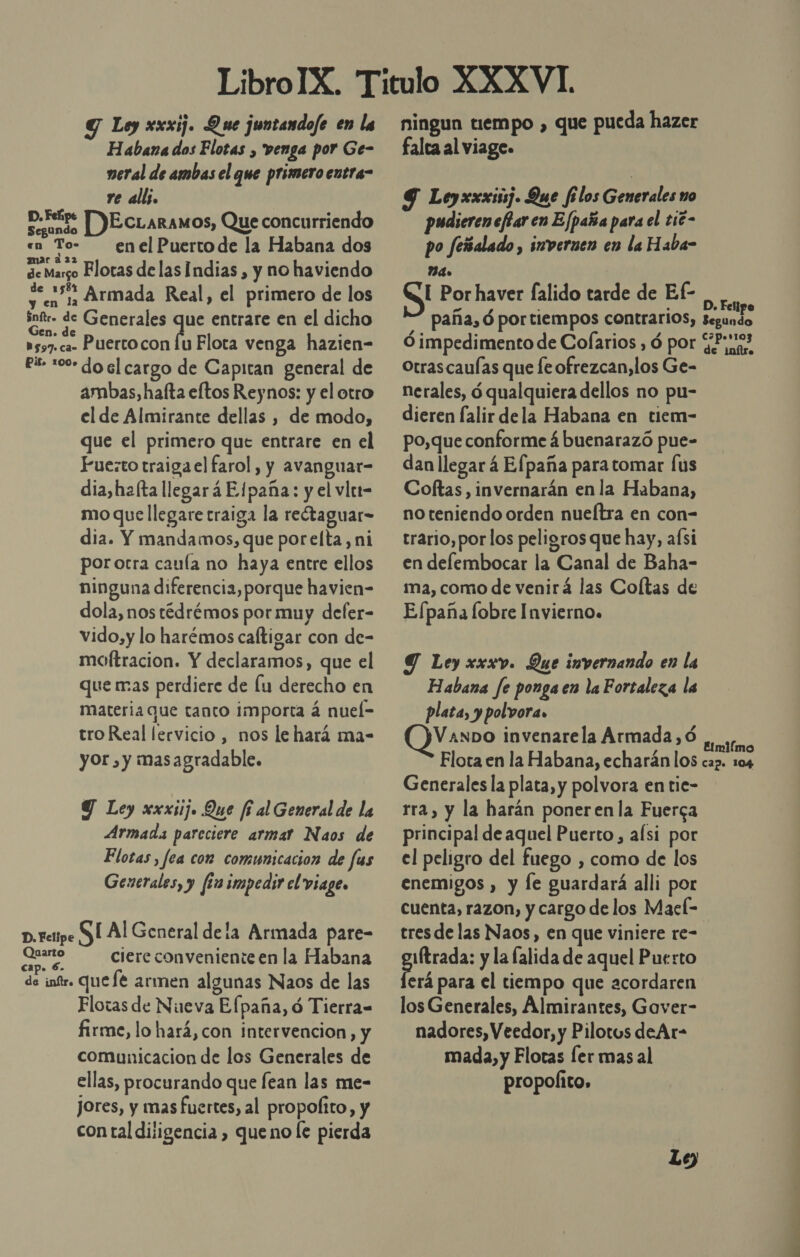 Libro IX. Titulo XXXVI.
¶ Ley xxxij. Que juntandoſe en la
Habana dos Flotas, venga por Ge-
neral de ambas el que primero entra-
re alli.
D. Felipe
Segundo
en To-
mar à 22
de Março
de 158
y en la
inſtr. de
Gen. de
1597. ca-
pit. 100.
DECLARAMOS, Que concurriendo
en el Puerto de la Habana dos
Flotas de las Indias, y no haviendo
Armada Real, el primero de los
Generales que entrare en el dicho
Puerto con ſu Flota venga hazien-
do el cargo de Capitan general de
ambas, haſta eſtos Reynos: y el otro
el de Almirante dellas, de modo,
que el primero que entrare en el
Puerto traiga el farol, y avanguar-
dia, haſta llegar á Eſpaña: y el vlti-
mo que llegare traiga la rectaguar-
dia. Y mandamos, que por eſta, ni
por otra cauſa no haya entre ellos
ninguna diferencia, porque havien-
dola, nos tēdrémos por muy deſer-
vido, y lo harémos caſtigar con de-
moſtracion. Y declaramos, que el
que mas perdiere de ſu derecho en
materia que tanto importa á nueſ-
tro Real ſervicio, nos le hará ma-
yor, y mas agradable.
¶ Ley xxxiij. Que ſi al General de la
Armada pareciere armar Naos de
Flotas, ſea con comunicacion de ſus
Generales, y ſin impedir el viage.
D. Felipe
Quarto
cap. 6.
de inſtr.
SI Al General de la Armada pare-
ciere conveniente en la Habana
que ſe armen algunas Naos de las
Flotas de Nueva Eſpaña, ó Tierra-
firme, lo hará, con intervencion, y
comunicacion de los Generales de
ellas, procurando que ſean las me-
jores, y mas fuertes, al propoſito, y
con tal diligencia, que no ſe pierda
ningun tiempo, que pueda hazer
falta al viage.
¶ Ley xxxiiij. Que ſi los Generales no
pudieren eſtar en Eſpaña para el tiē-
po ſeñalado, invernen en la Haba-
na.
SI Por haver ſalido tarde de Eſ-
paña, ó por tiempos contrarios,
ó impedimento de Coſarios, ó por
otras cauſas que ſe ofrezcan, los Ge-
nerales, ó qualquiera dellos no pu-
dieren ſalir de la Habana en tiem-
po, que conforme á buena razō pue-
dan llegar á Eſpaña para tomar ſus
Coſtas, invernarán en la Habana,
no teniendo orden nueſtra en con-
trario, por los peligros que hay, aſsi
en deſembocar la Canal de Baha-
ma, como de venir á las Coſtas de
Eſpaña ſobre Invierno.
D. Felipe
Segundo
cap. 103
de inſtr.
¶ Ley xxxv. Que invernando en la
Habana ſe ponga en la Fortaleza la
plata, y polvora.
QVANDO invernare la Armada, ó
Flota en la Habana, echarán los
Generales la plata, y polvora en tie-
rra, y la harán poner en la Fuerça
principal de aquel Puerto, aſsi por
el peligro del fuego, como de los
enemigos, y ſe guardará alli por
cuenta, razon, y cargo de los Maeſ-
tres de las Naos, en que viniere re-
giſtrada: y la ſalida de aquel Puerto
ſerá para el tiempo que acordaren
los Generales, Almirantes, Gover-
nadores, Veedor, y Pilotos de Ar-
mada, y Flotas ſer mas al
propoſito.
El miſmo
cap. 104
Ley